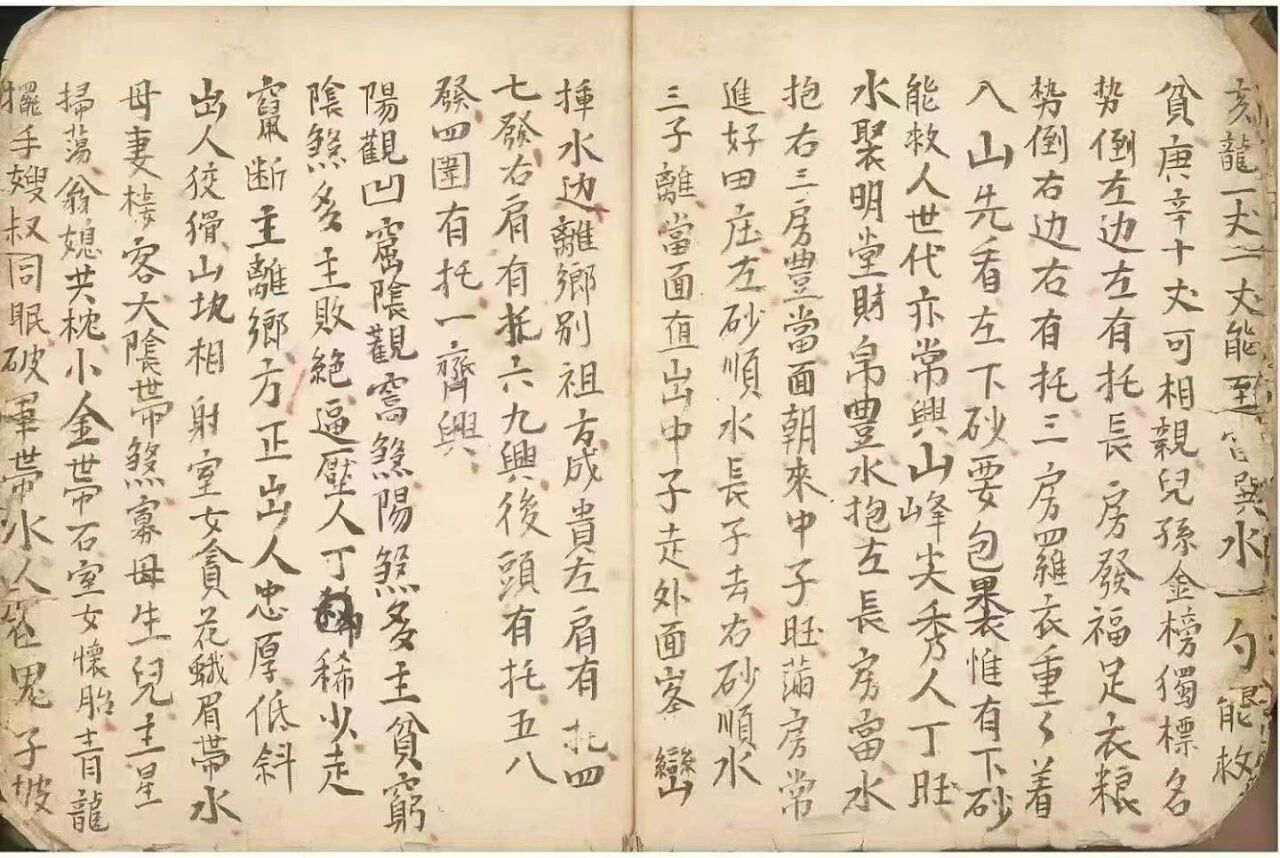 亥龍一丈一丈能至官巽水一勺能救
貧庚辛十丈可相親兒孫金榜獨標名
势倒左边左有托長房發福足衣粮
势倒右边右有托三房四羅衣重々着
入山先看左下砂要包裹惟有下砂
能救人世代亦常興山峰尖秀人丁旺
水聚明堂財帛豊水抱左長房富水
抱右三房豊當面朝來中子旺蒲房常
進好田庄左砂順水長子去右砂順水
三子離當面直出中子走外面峯巒
插水边離鄉别祖方成貴左肩有托四
七發右肩有托六九興後頭有托五八
發四圍有托一齊興
陽觀凹窟隂觀窩煞陽煞多主貧窮
隂煞多主敗絶逼壓人丁稀少走
竄断主離鄉方正出人忠厚低斜
出人狡猾山执相射室女貪花蛾眉帶水
母妻接客大隂帶煞寡母生兒主星
掃蕩翁媳共枕小金帶石室女懷胎青龍
擺手嫂叔同眠破軍帶水人名男子坡